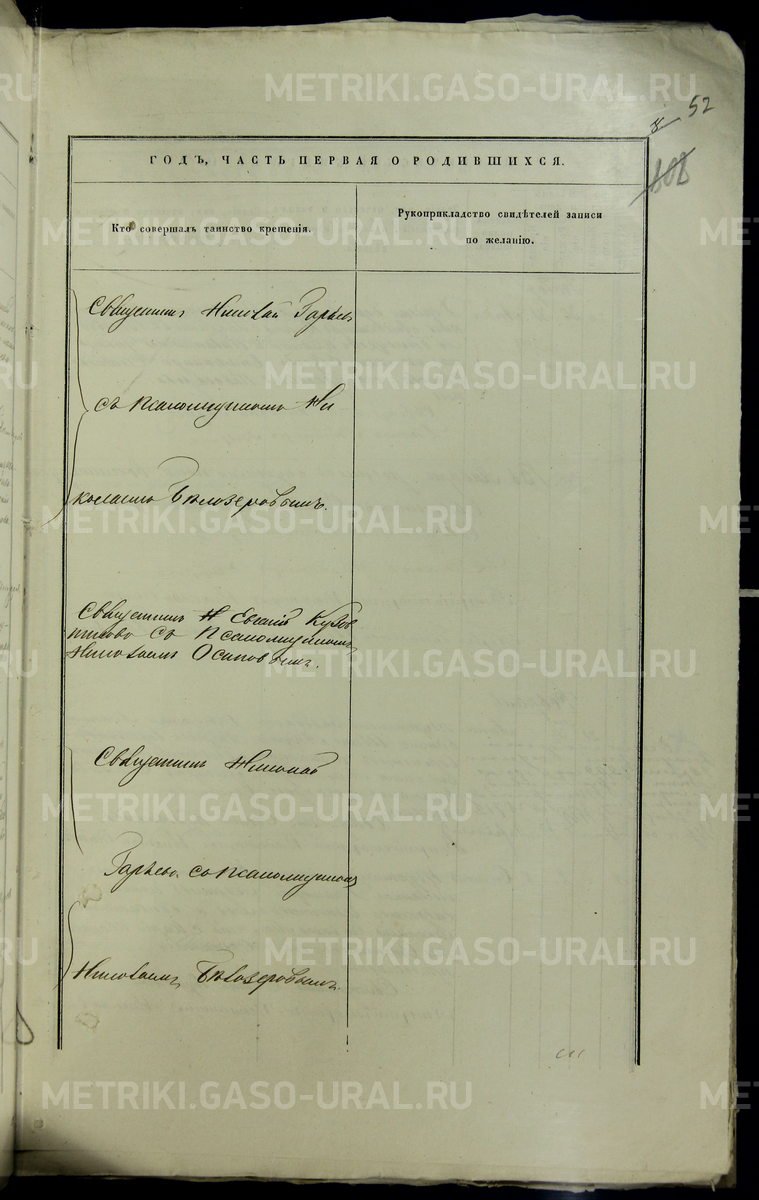 METRIKI.GASO-URAL.RU
52
ГОДЪ, ЧАСТЬ ПЕРВАЯ О РОДИВШИХСЯ.
Кто совершалъ таинство крещенія.
Рукоприкладство свидѣтелей записи
по желанію.
Священникъ Николай
съ псаломщикомъ Ни
колаемъ Бѣлозеровымъ.
Священникъ Евгеній
съ Псаломщикомъ
Николаемъ Осиповымъ.
Священникъ Николай
со псаломщикомъ
Николаемъ Бѣлозеровымъ.